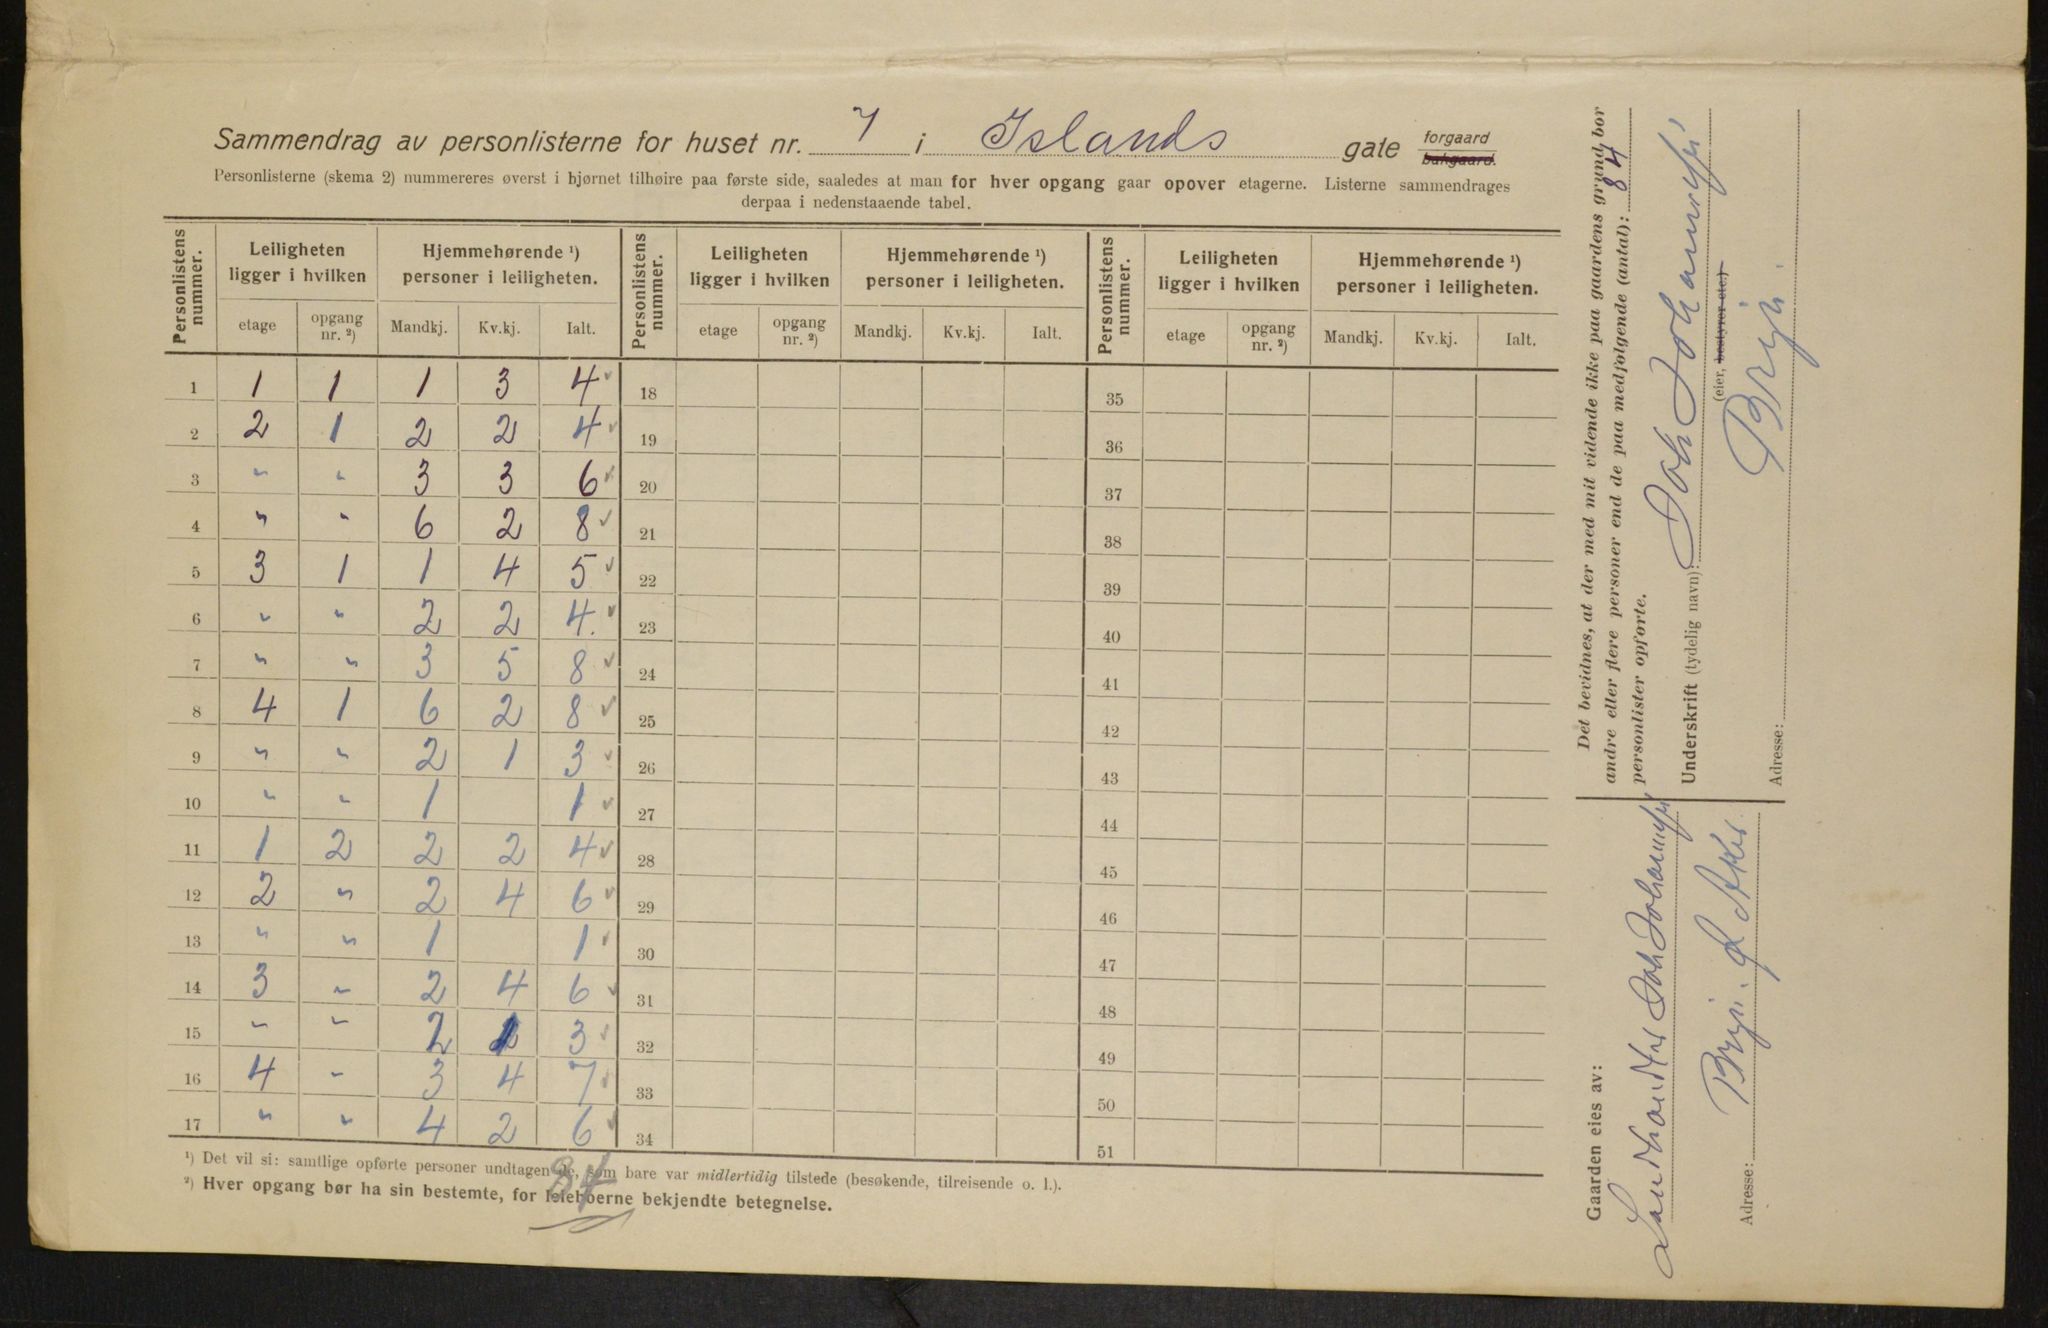 Sammendrag av personlisterne for huset nr. 7 i Islands gate forgaard bakgaard.
Personlisterne (skema 2) nummereres øverst i hjørnet tilhøire paa første side, saaledes at man for hver opgang gaar opover etagerne. Listerne sammendrages
derpaa i nedenstaaende tabel.
Personlistens nummer. Leiligheten ligger i hvilken Hjemmehørende ¹) personer i leiligheten. Personlistens nummer. Leiligheten ligger i hvilken Hjemmehørende ¹) personer i leiligheten. Personlistens nummer. Leiligheten ligger i hvilken Hjemmehørende ¹) personer i leiligheten.
etage opgang nr. ²) Mandkj. Kv.kj. Ialt. etage opgang nr. ²) Mandkj. Kv.kj. Ialt. etage opgang nr. ²) Mandkj. Kv.kj. Ialt.
1 1 1 1 3 4 18 35
2 2 1 2 2 4 19 36
3 " " 3 3 6 20 37
4 " " 6 2 8 21 38
5 3 1 1 4 5 22 39
6 " " 2 2 4. 23 40
7 " " 3 5 8 24 41
8 4 1 6 2 8 25 42
9 " " 2 1 3 26 43
10 " " 1 1 27 44
11 1 2 2 2 4 28 45
12 2 " 2 4 6 29 46
13 " " 1 1 30 47
14 3 " 2 4 6 31 48
15 " " 2 1 3 32 49
16 4 " 3 4 7 33 50
17 " " 4 2 6 34 51
¹) Det vil si: samtlige opførte personer undtagen de, som bare var midlertidig tilstede (besøkende, tilreisende o. l.).
²) Hver opgang bør ha sin bestemte, for leieboerne bekjendte betegnelse.
84
Det bevidnes, at der med mit vidende ikke paa gaardens grund bor
andre eller flere personer end de paa medfølgende (antal): 84
personlister opførte.
Underskrift (tydelig navn): Joh Johannesen
(eier, bestyrer etc.)
Adresse: Bryn.
Gaarden eies av:
Landhandler Joh Johannesen
Adresse: Bryn. Ø Aker.